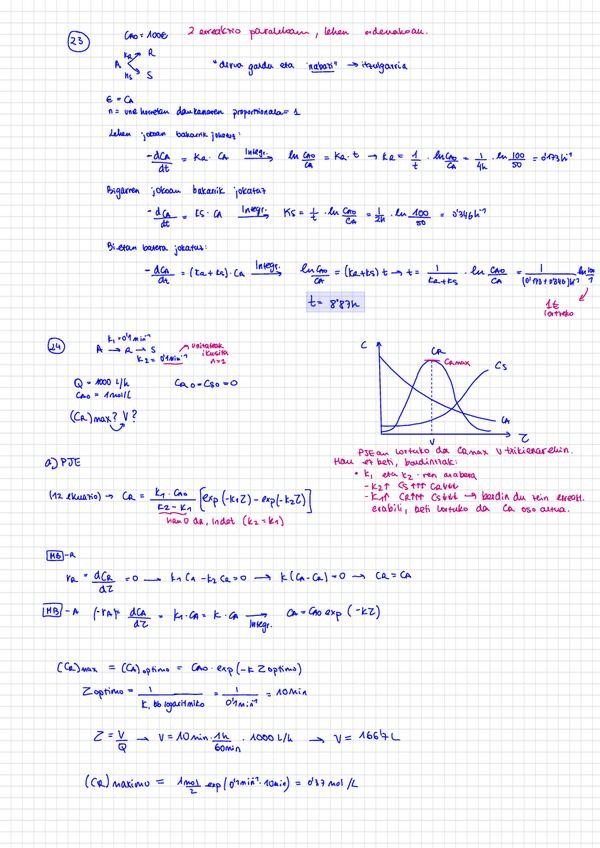 23
CA0 = 100€
2 erreakzio paraleloan, lehen ordenakoan.
kR R
A
kS S
"dirua galdu eta irabazi" → itzulgarria
€ = CA
n = une horretan daukanaren proportzionala = 1
Lehen jokoan bakarrik jokatuz:
-dCA/dt = KR · CA Integr. → ln CA0/CA = KR · t → KR = 1/t · ln CA0/CA = 1/4h · ln 100/50 = 0'173 h⁻¹
Bigarren jokoan bakarrik jokatuz
-dCA/dt = KS · CA Integr. → KS = 1/t · ln CA0/CA = 1/2h · ln 100/50 = 0'346 h⁻¹
Bietan batera jokatuz:
-dCA/dt = (KR + KS) · CA Integr. → ln CA0/CA = (KR + KS) t → t = 1/(KR + KS) · ln CA0/CA
1€ lortzeko
t = 8'87h
24
K1 = 0'1 min⁻¹
A → R → S
K2 = 0'1 min⁻¹
unitateak ikusita n=1
Q = 1000 L/h CR0 = CS0 = 0
CA0 = 1 mol/L
(CR)max? V?
C
CR
CRmax
CS
CA
V
τ
a) PJE
PJEan lortuko da CRmax V txikienarekin.
Hau ez beti, bardintzak:
• K1 eta K2-ren arabera
- K2↑ CS↑↑↑ CR↓↓↓
(12. ekuazio) → CR = K1 · CA0/(K2 - K1) [exp(-K1τ) - exp(-K2τ)]
hau 0 da, indet (K2 = K1)
MB - R
rR = dCR/dτ = 0 → K1 CA - K2 CR = 0 → K (CA - CR) = 0 → CR = CA
MB - A (-rA) = dCA/dτ = K1 · CA = K · CA Integr. → CA = CA0 exp (-Kτ)
(CR)max = (CA)optimo = CA0 · exp (-K τoptimo)
τoptimo = 1/K, bb logaritmiko = 1/0'1 min⁻¹ = 10 min
τ = V/Q → V = 10 min · 1h/60min · 1000 L/h → V = 166'7 L
(CR) maximo = 1 mol/L exp (0'1 min⁻¹ · 10 min) = 0'37 mol/L